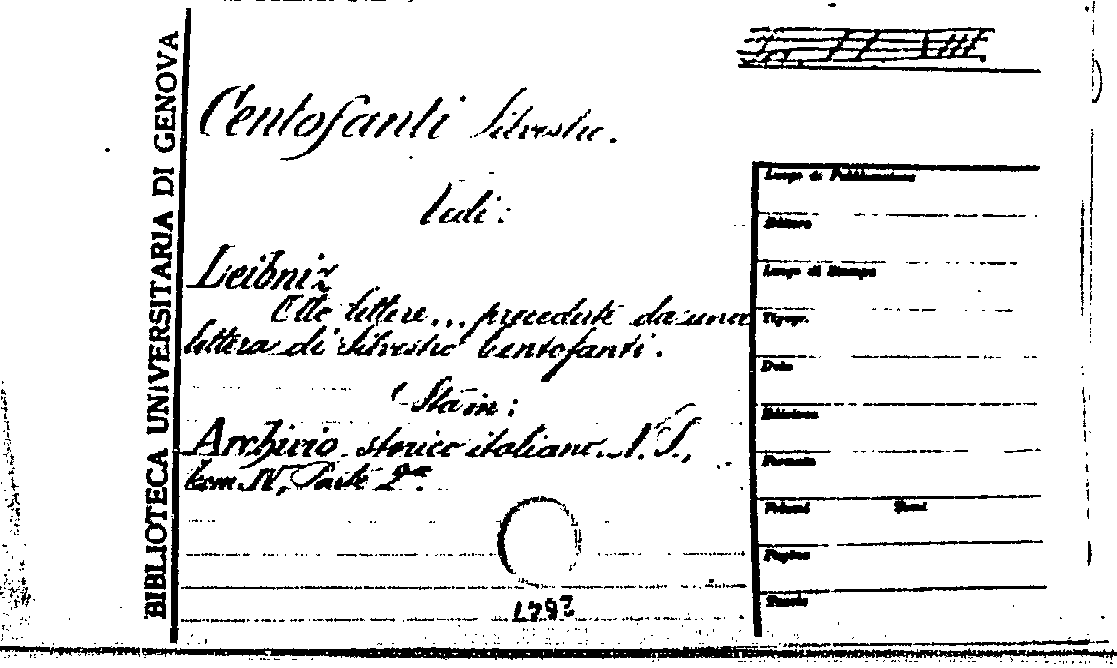 BIBLIOTECA UNIVERSITARIA DI GENOVA
Centofanti Silvestro.
Vedi:
Leibniz
Otto lettere... precedute da una
lettera di Silvestro Centofanti.
Sta in:
Archivio storico italiano. N. S.,
tom. IV, Parte 2ª.
Luogo di Pubblicazione
Editore
Luogo di Stampa
Tipogr.
Data
Edizione
Formato
Volumi Tomi
Pagine
Tavole